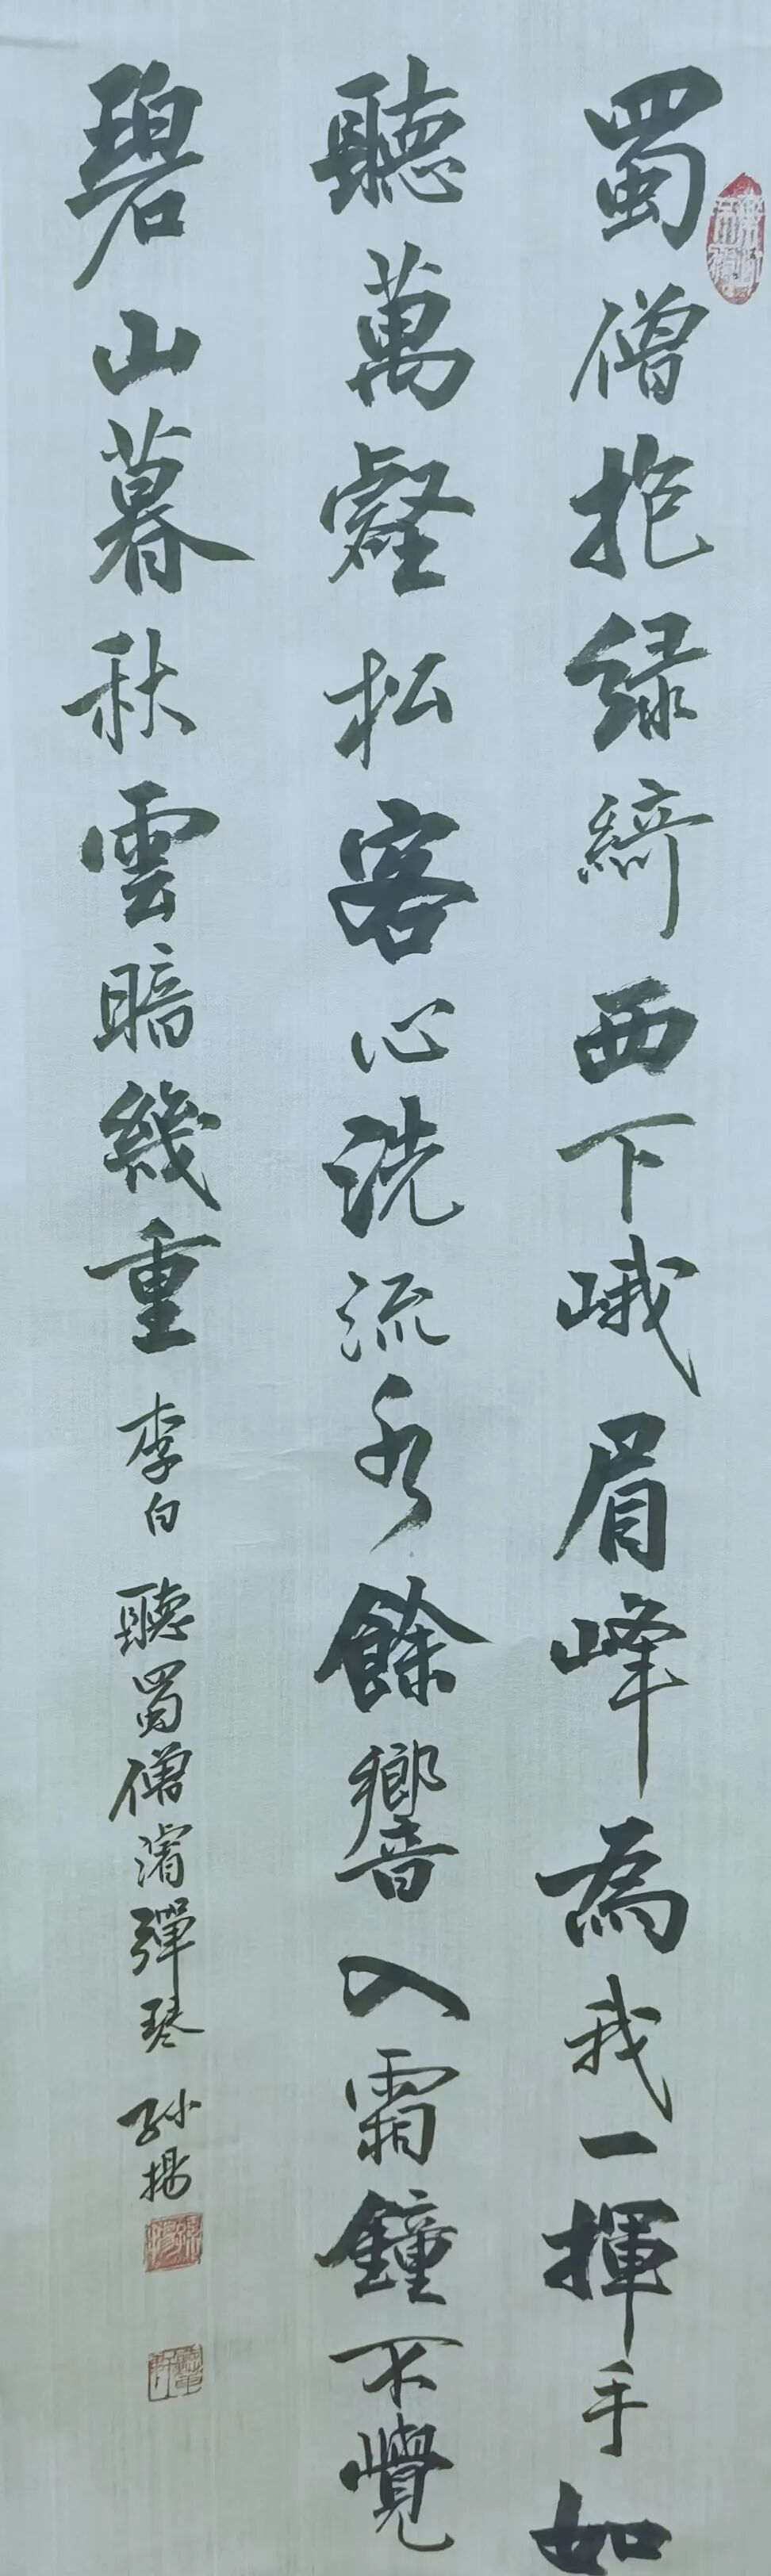 蜀僧抱绿綺西下峨眉峰為我一揮手如
聽萬壑松客心洗流水餘響入霜鐘不覺
碧山暮秋雲暗幾重 李白 聽蜀僧濬彈琴 孙揚